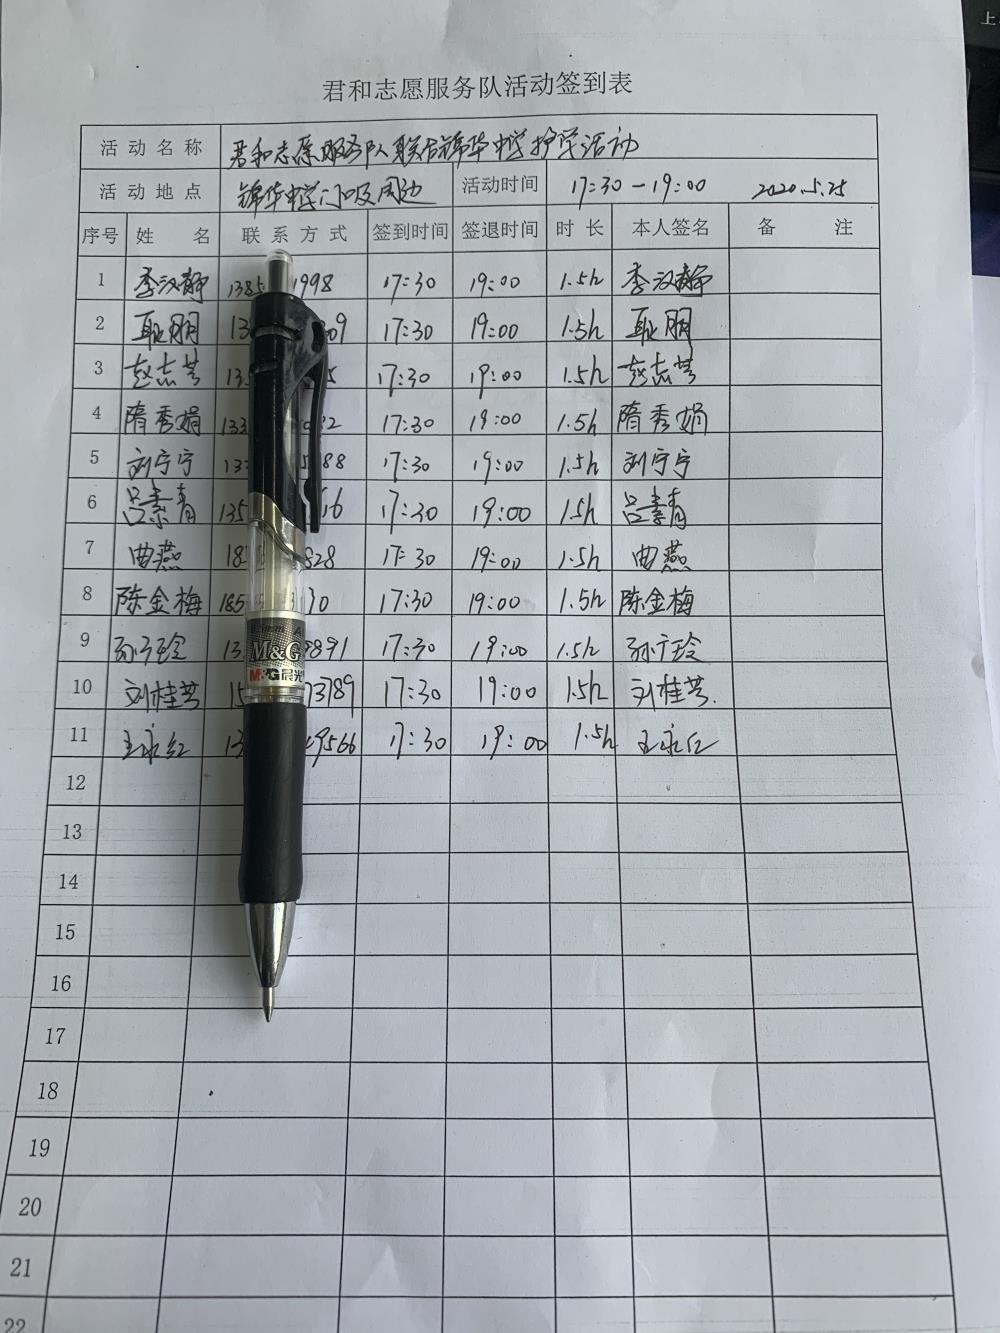 君和志愿服务队活动签到表
活动名称 君和志愿服务队联合锦华中学护学活动
活动地点 锦华中学门口及周边 活动时间 17:30-19:00 2020.5.25
序号 姓名 联系方式 签到时间 签退时间 时长 本人签名 备注
1 李汉静 1385 1998 17:30 19:00 1.5h 李汉静
2 耿朋 13 09 17:30 19:00 1.5h 耿朋
3 赵志芳 135 5 17:30 19:00 1.5h 赵志芳
4 隋秀娟 133 2 17:30 19:00 1.5h 隋秀娟
5 刘宁宁 133 88 17:30 19:00 1.5h 刘宁宁
6 吕素青 135 16 17:30 19:00 1.5h 吕素青
7 曲燕 18 828 17:30 19:00 1.5h 曲燕
8 陈金梅 185 30 17:30 19:00 1.5h 陈金梅
9 孙广玲 13 9891 17:30 19:00 1.5h 孙广玲
10 刘桂芳 15 73789 17:30 19:00 1.5h 刘桂芳.
11 王永红 13 9566 17:30 19:00 1.5h 王永红
12
13
14
15
16
17
18
19
20
21
22
M&G
M&G晨光
上